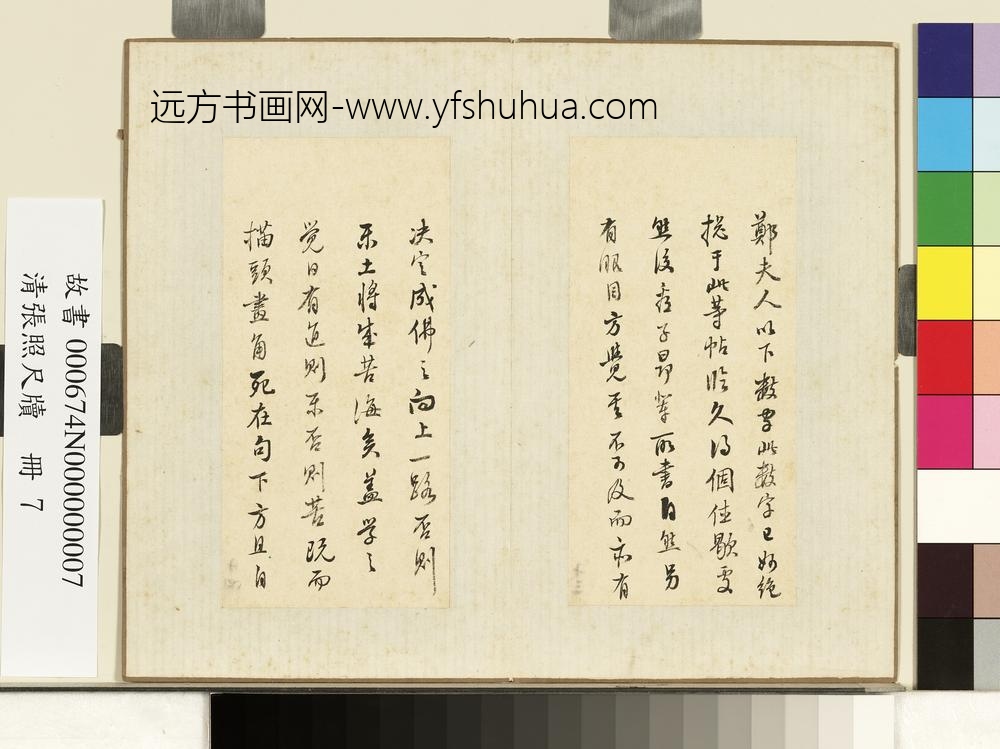 远方书画网-www.yfshuhua.com
鄭夫人以下數字此數字已好絕
於于此等帖臨久得個住歇處
然後看子昂輩所書自然另
有眼目方覺其不可及而亦有
決定成佛之向上一路否則
乐土將成苦海矣蓋学之
觉日有近则乐否则苦既而
描頭畫角死在句下方且自
故書 000674N000000007
清張照尺牘 冊 7